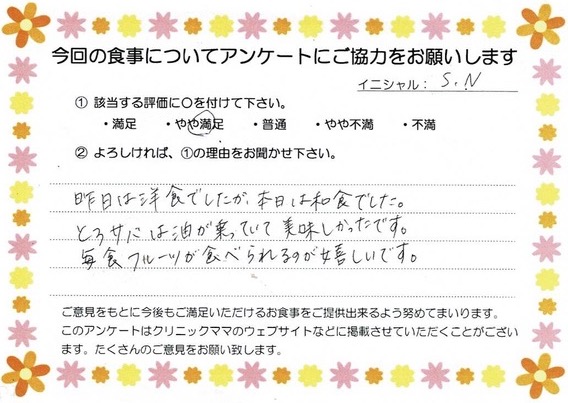 今回の食事についてアンケートにご協力をお願いします
イニシャル: S.N
① 該当する評価に〇を付けて下さい。
・満足 ・やや満足 ・普通 ・やや不満 ・不満
② よろしければ、①の理由をお聞かせ下さい。
昨日は洋食でしたが、本日は和食でした。
とろサバは油が乗っていて美味しかったです。
毎食フルーツが食べられるのが嬉しいです。
ご意見をもとに今後もご満足いただけるお食事をご提供出来るよう努めてまいります。
このアンケートはクリニックママのウェブサイトなどに掲載させていただくことがござい
ます。たくさんのご意見をお願い致します。